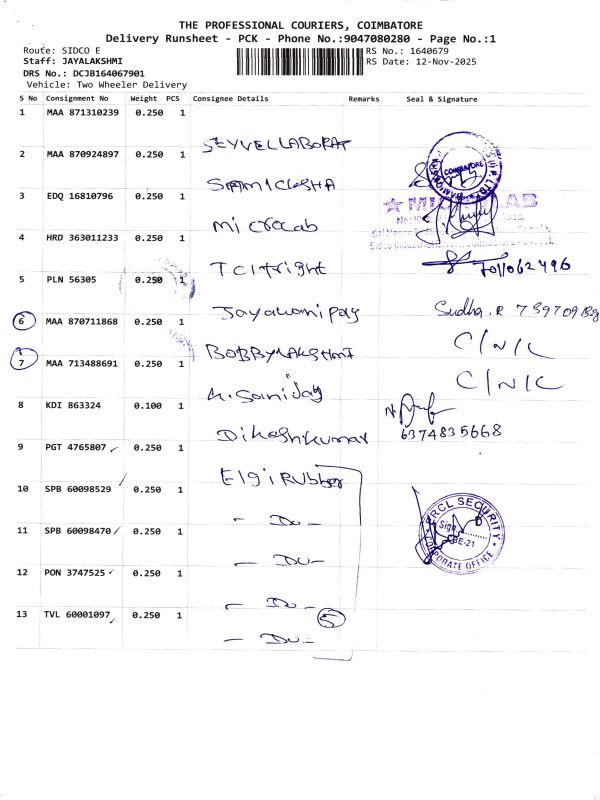 THE PROFESSIONAL COURIERS, COIMBATORE
Delivery Runsheet - PCK - Phone No.:9047080280 - Page No.:1
Route: SIDCO E
RS No.: 1640679
Staff: JAYALAKSHMI
RS Date: 12-Nov-2025
DRS No.: DCJB164067901
Vehicle: Two Wheeler Delivery
S No Consignment No Weight PCS Consignee Details Remarks Seal & Signature
1 MAA 871310239 0.250 1
SEYVELLABORAT
2 MAA 870924897 0.250 1
COIMBATORE
3 EDQ 16810796 0.250 1
Microlab
LAB
4 HRD 363011233 0.250 1
TCI fright
7011062496
5 PLN 56305 0.250 1
Sudha.R
6 MAA 870711868 0.250 1
C/N/C
7 MAA 713488691 0.250 1
C/N/C
8 KDI 863324 0.100 1
Dikeshkumar
6374835668
9 PGT 4765807 0.250 1
Elgi Rubber
10 SPB 60098529 0.250 1
- Do -
PRCL SECURITY
Sign
CORPORATE OFFICE
11 SPB 60098470 0.250 1
- Do -
12 PON 3747525 0.250 1
- Do -
5
13 TVL 60001097 0.250 1
- Do -